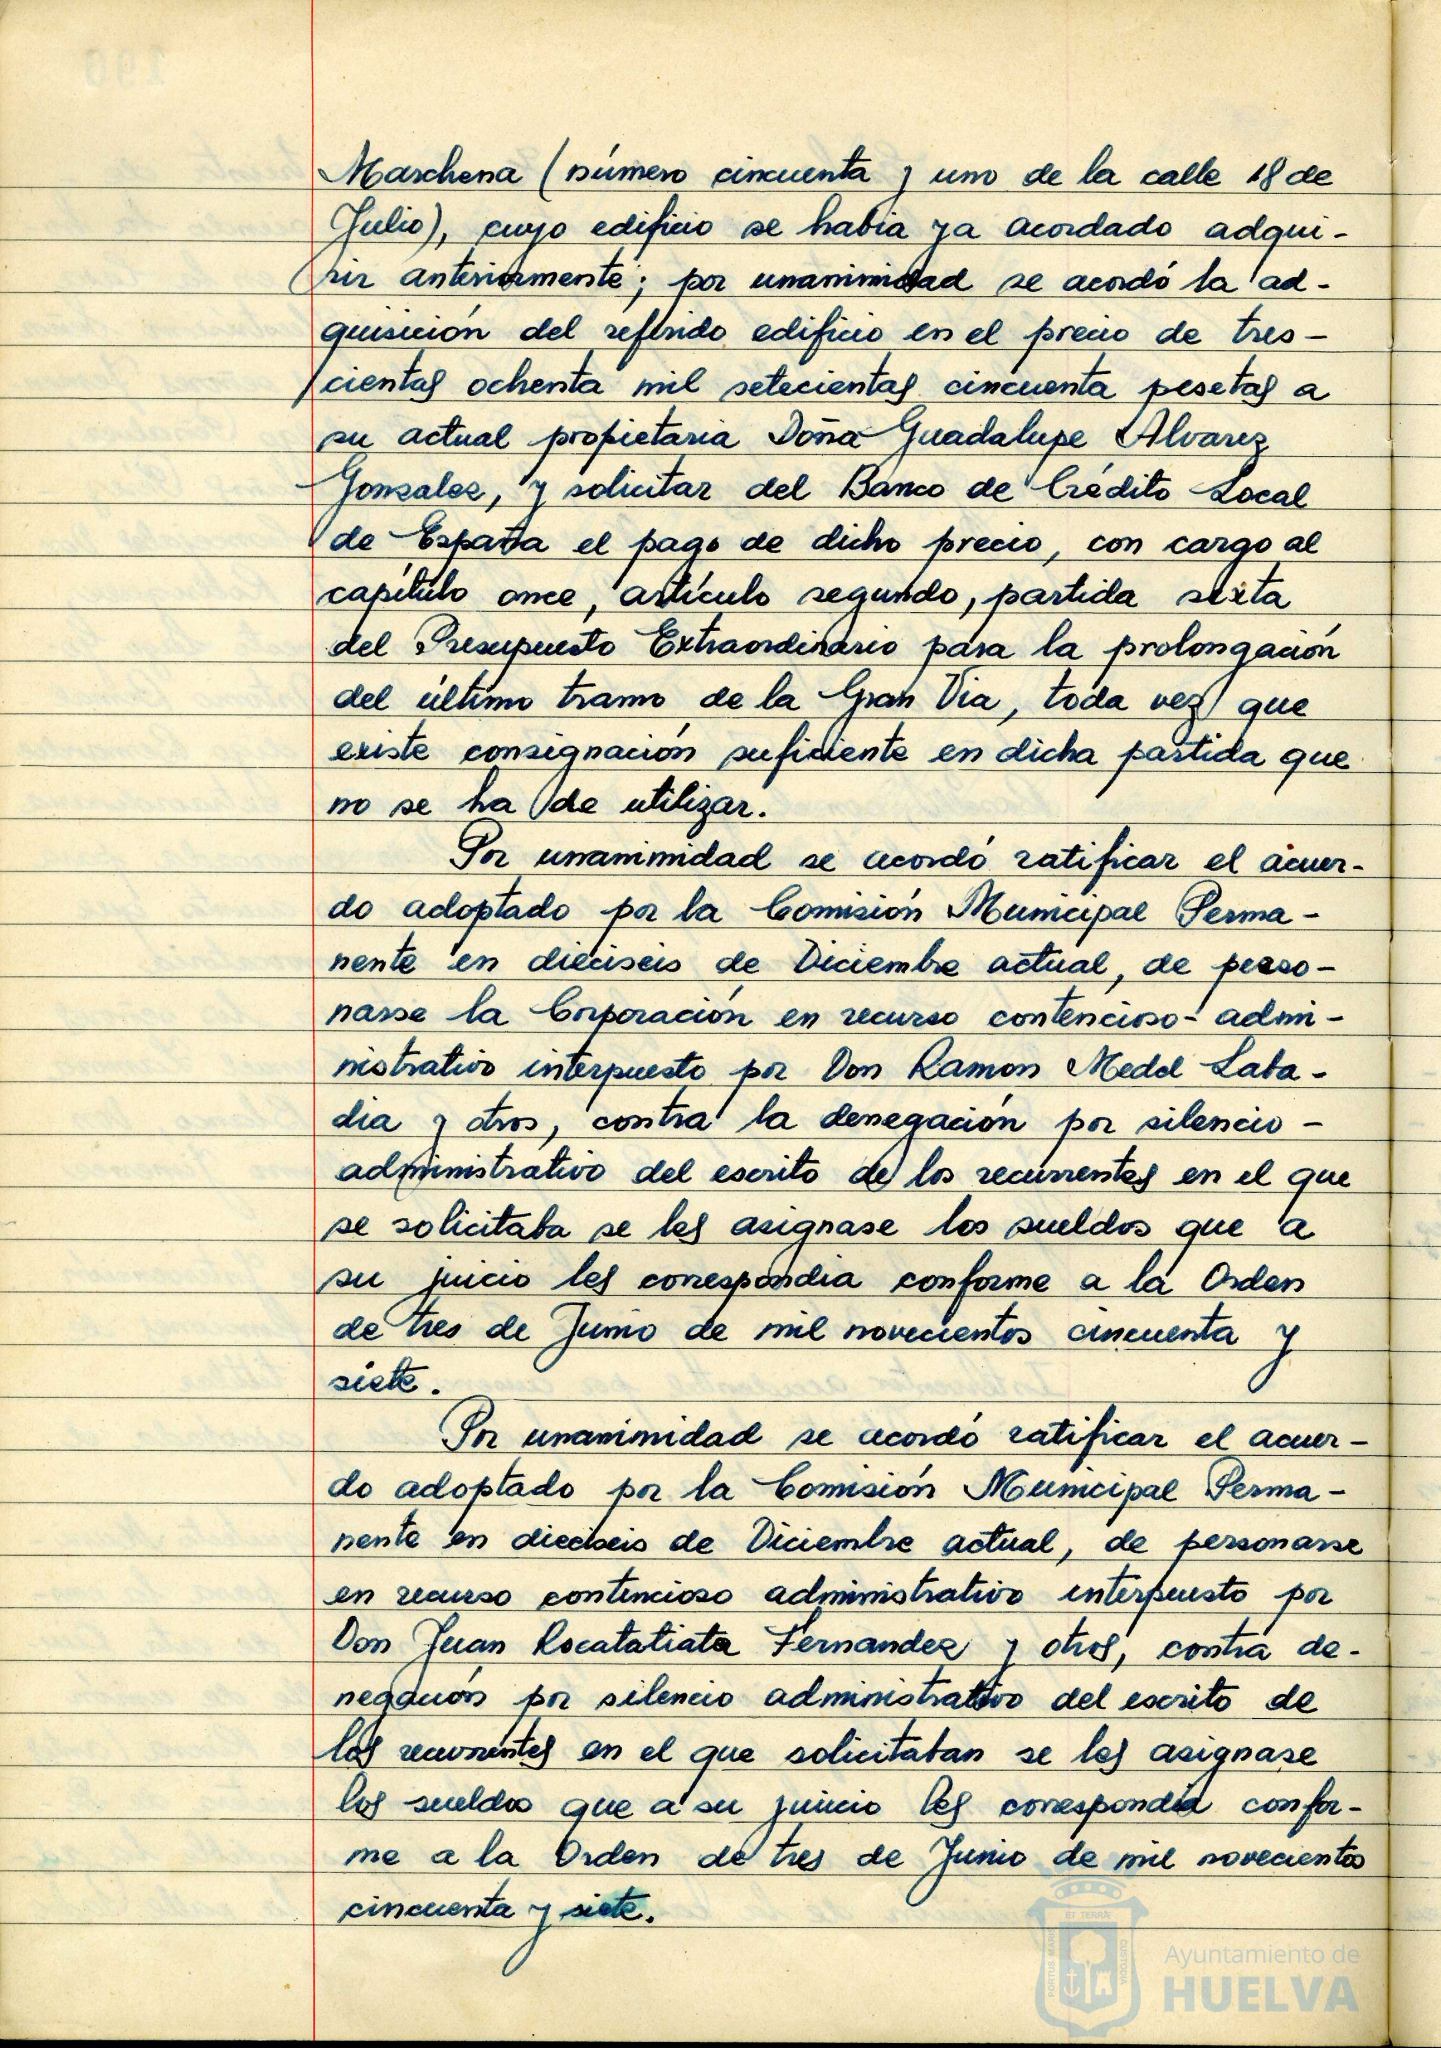 Marchena (número cincuenta y uno de la calle 18 de
Julio), cuyo edificio se habia ya acordado adqui-
rir anteriormente; por unanimidad se acordó la ad-
quisición del referido edificio en el precio de tres-
cientas ochenta mil setecientas cincuenta pesetas a
su actual propietaria Doña Guadalupe Alvarez
Gonzalez, y solicitar del Banco de Crédito Local
de España el pago de dicho precio, con cargo al
capítulo once, artículo segundo, partida sexta
del Presupuesto Extraordinario para la prolongación
del último tramo de la Gran Via, toda vez que
existe consignación suficiente en dicha partida que
no se ha de utilizar.
Por unanimidad se acordó ratificar el acuer-
do adoptado por la Comisión Municipal Perma-
nente en dieciseis de Diciembre actual, de perso-
narse la Corporación en recurso contencioso-admi-
nistrativo interpuesto por Don Ramon Medel Laba-
dia y otros, contra la denegación por silencio-
administrativo del escrito de los recurrentes en el que
se solicitaba se les asignase los sueldos que a
su juicio les correspondia conforme a la Orden
de tres de Junio de mil novecientos cincuenta y
siete.
Por unanimidad se acordó ratificar el acuer-
do adoptado por la Comisión Municipal Perma-
nente en dieciseis de Diciembre actual, de personarse
en recurso contencioso administrativo interpuesto por
Don Juan Rocatatiata Fernandez y otros, contra de-
negación por silencio administrativo del escrito de
los recurrentes en el que solicitaban se les asignase
los sueldos que a su juicio les correspondia confor-
me a la Orden de tres de Junio de mil novecientos
cincuenta y siete.
PORTUS MARIS ET TERRÆ CUSTODIA
Ayuntamiento de
HUELVA